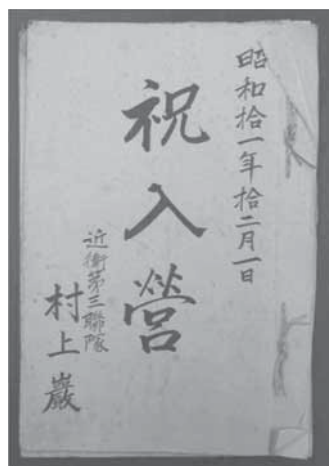 昭和拾一年拾二月一日
祝入營
近衛第三聯隊
村上巖